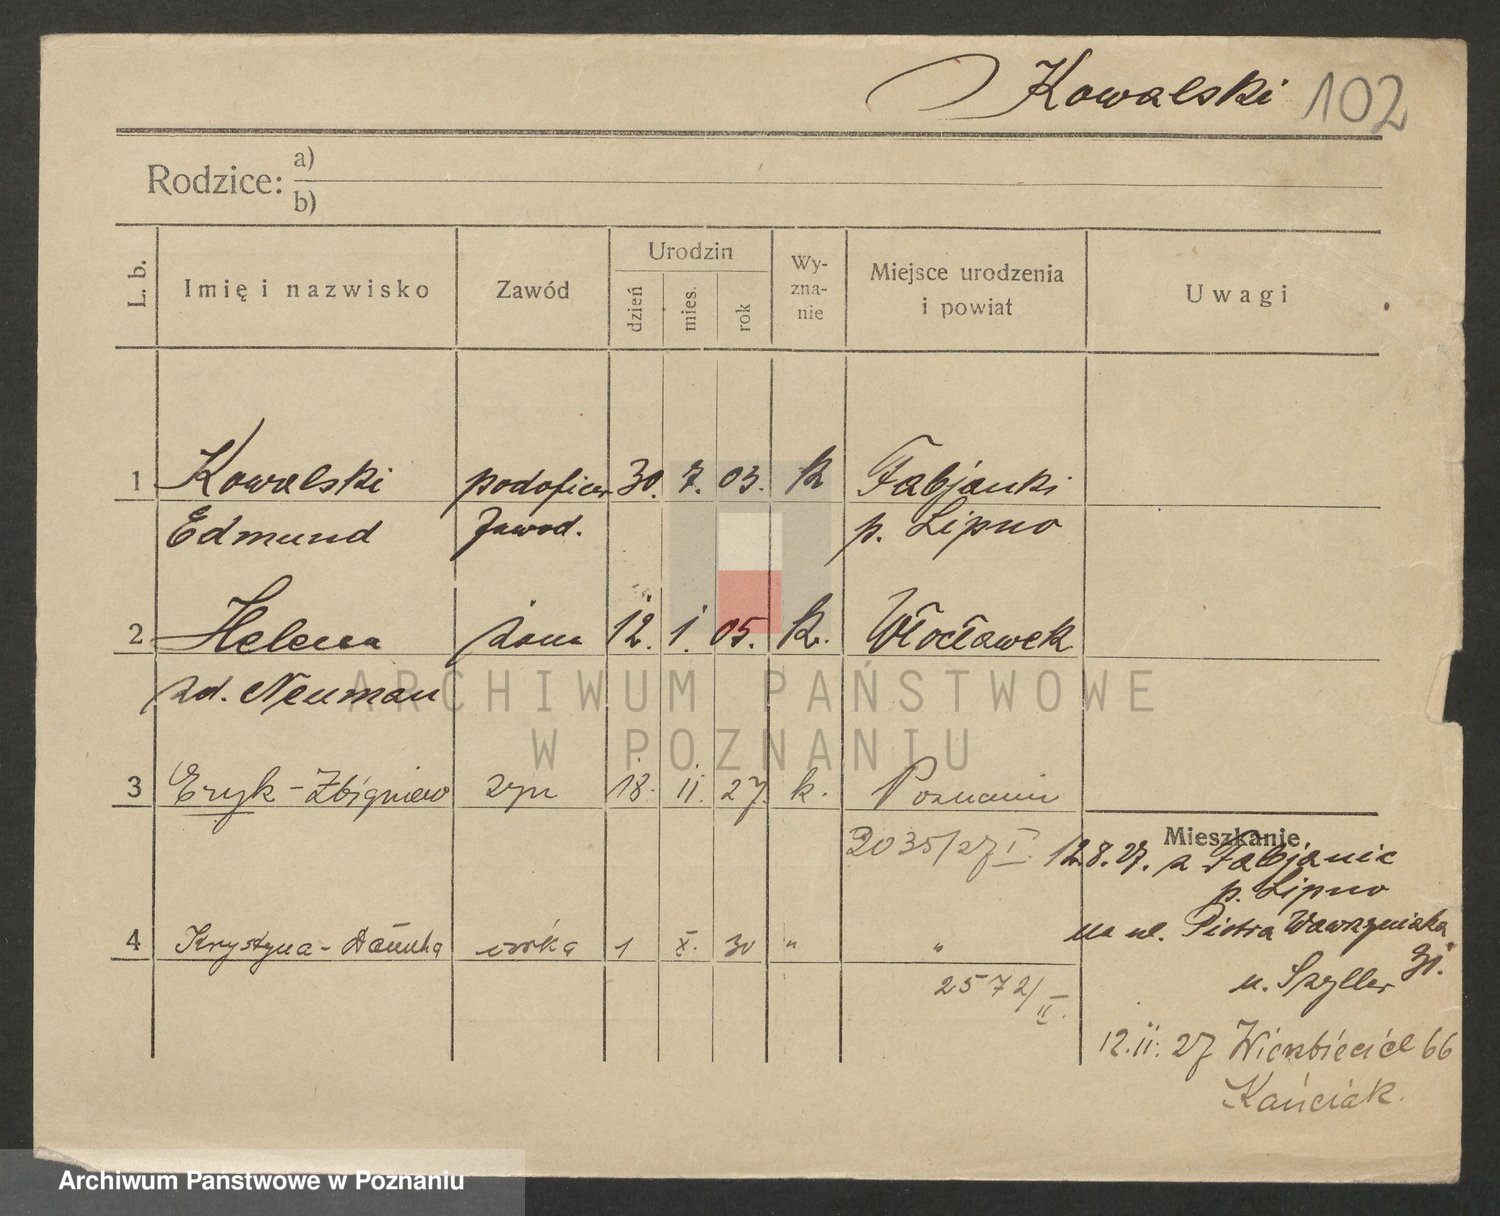 Kowalski 102
Rodzice: a)
b)
L. b.
Imię i nazwisko
Zawód
Urodzin
dzień
mies.
rok
Wy-
zna-
nie
Miejsce urodzenia
i powiat
Uwagi
1 Kowalski podoficer 30. 7. 03. k Fabjanki
Edmund zawod. p. Lipno
2 Helena żona 12. 1. 05. k. Włocławek
zd. Neuman
ARCHIWUM PAŃSTWOWE
W POZNANIU
3 Eryk-Zbigniew syn 18. 11. 27. k. Poznaniu
2035/27 I.
4 Krystyna-Danuta córka 1 X. 30 " "
2572/II.
Mieszkanie
12.8.27. z Fabjanic
p. Lipno
na ul. Piotra Wawrzyniaka
31.
u. Szyller
12.11.27 Wierzbięcice 66
Kańciak.
Archiwum Państwowe w Poznaniu